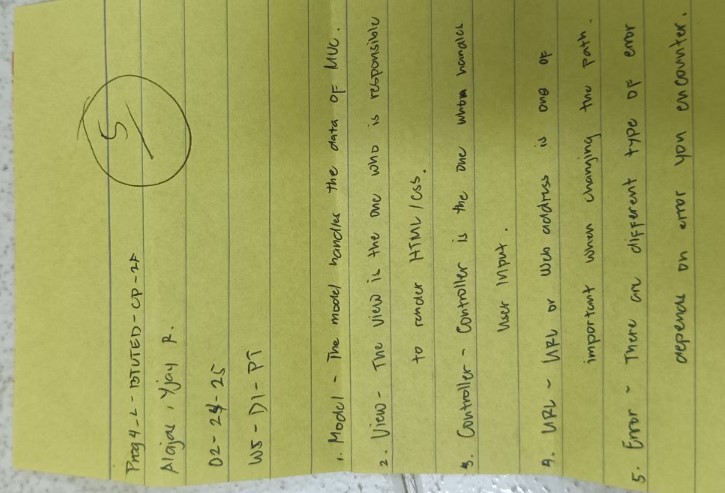 5
Prog 4-L-BTVTED-CP-2F
Alajas, Yjay R.
02-24-25
W5-D1-PT
1. Model - The model handles the data of MVC.
2. View - The view is the one who is responsible
to render HTML/CSS.
3. Controller - Controller is the one whom handles
User Input.
4. URL - URL or Web address is one of
important when changing the path.
5. Error - There are different type of error
depends on error you encounter.